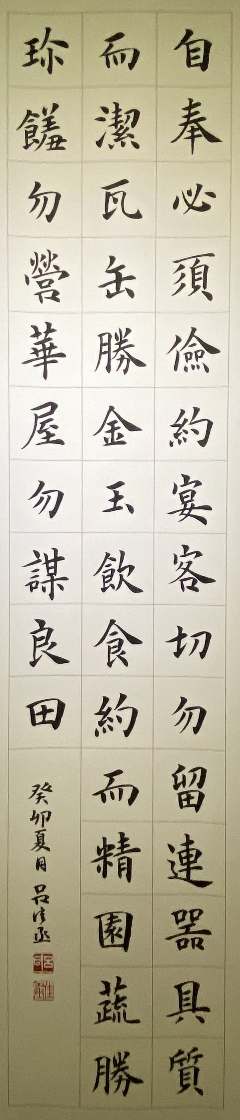 自奉必須儉約宴客切勿留連器具質
而潔瓦缶勝金玉飲食約而精園蔬勝
珍饈勿營華屋勿謀良田
癸卯夏月呂